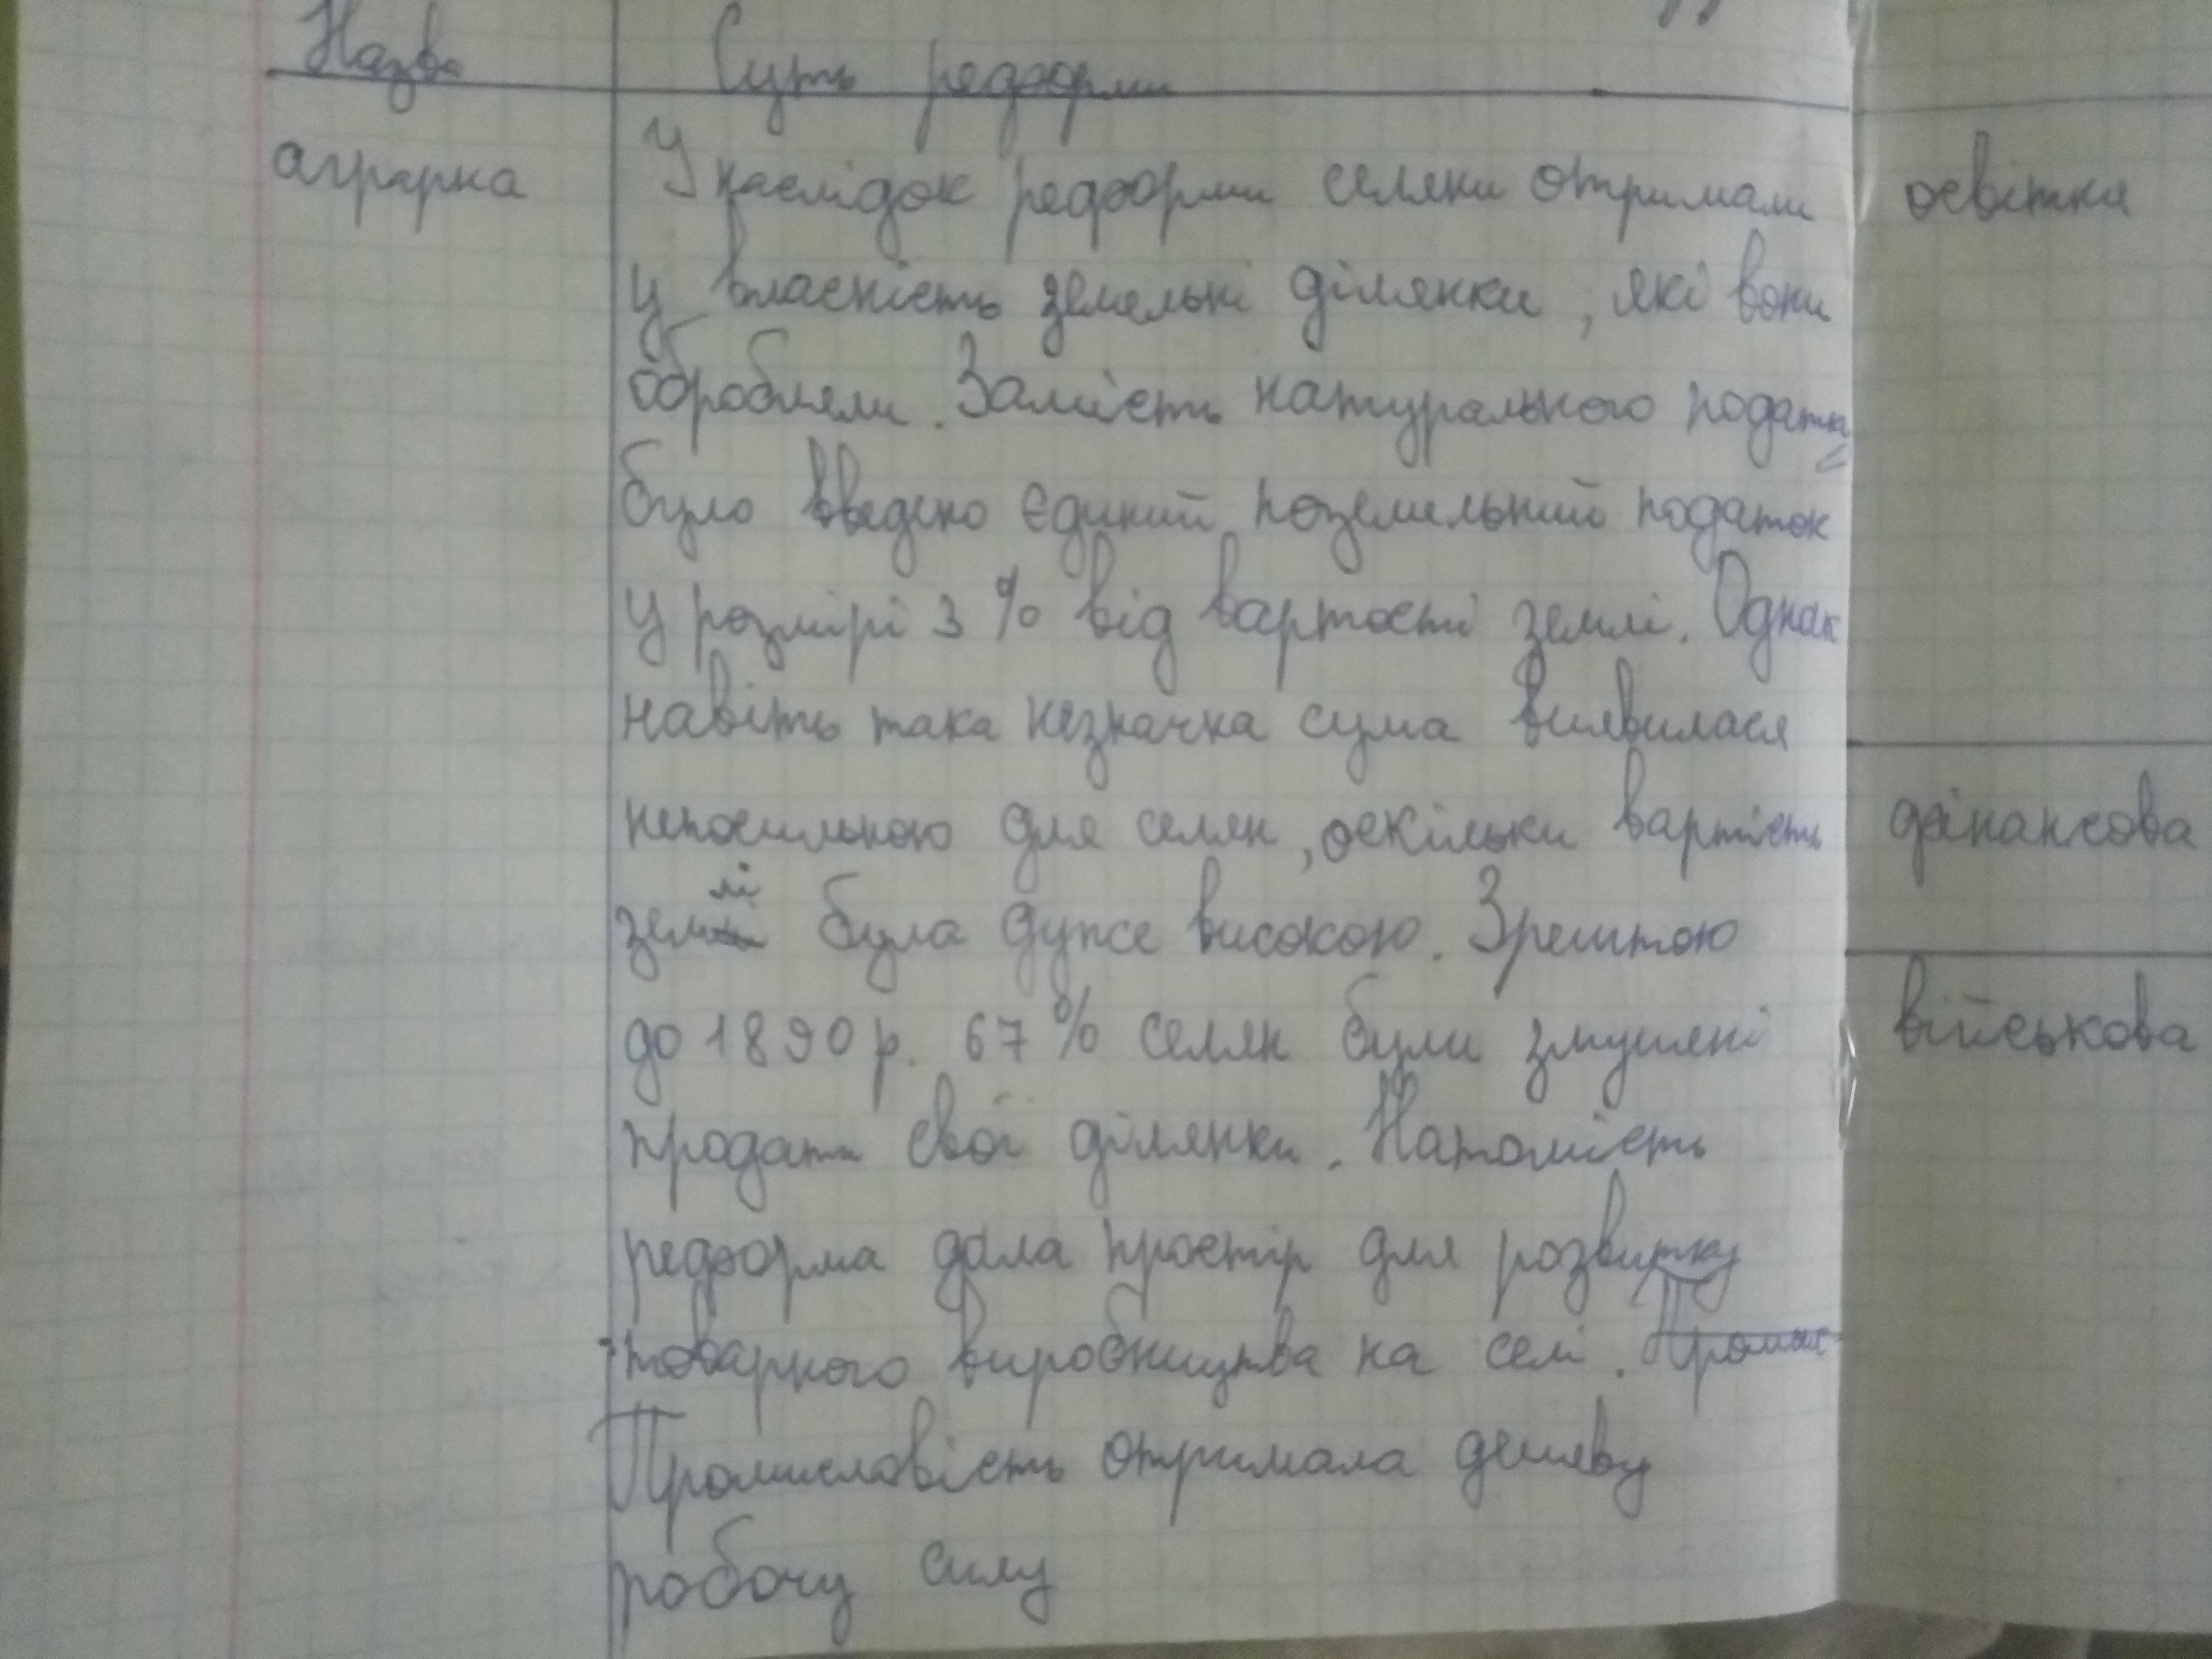 Назва Суть реформи
аграрна Унаслідок реформи селяни отримали
у власність земельні ділянки, які вони
обробляли. Замість натурального податку
було введено єдиний поземельний податок
у розмірі 3 % від вартості землі. Однак
навіть така незначна сума виявилася
непосильною для селян, оскільки вартість
землі була дуже високою. Зрештою
до 1890 р. 67 % селян були змушені
продати свої ділянки. Натомість
реформа дала простір для розвитку
товарного виробництва на селі. Промис
Промисловість отримала дешеву
робочу силу
освітня
фінансова
військова